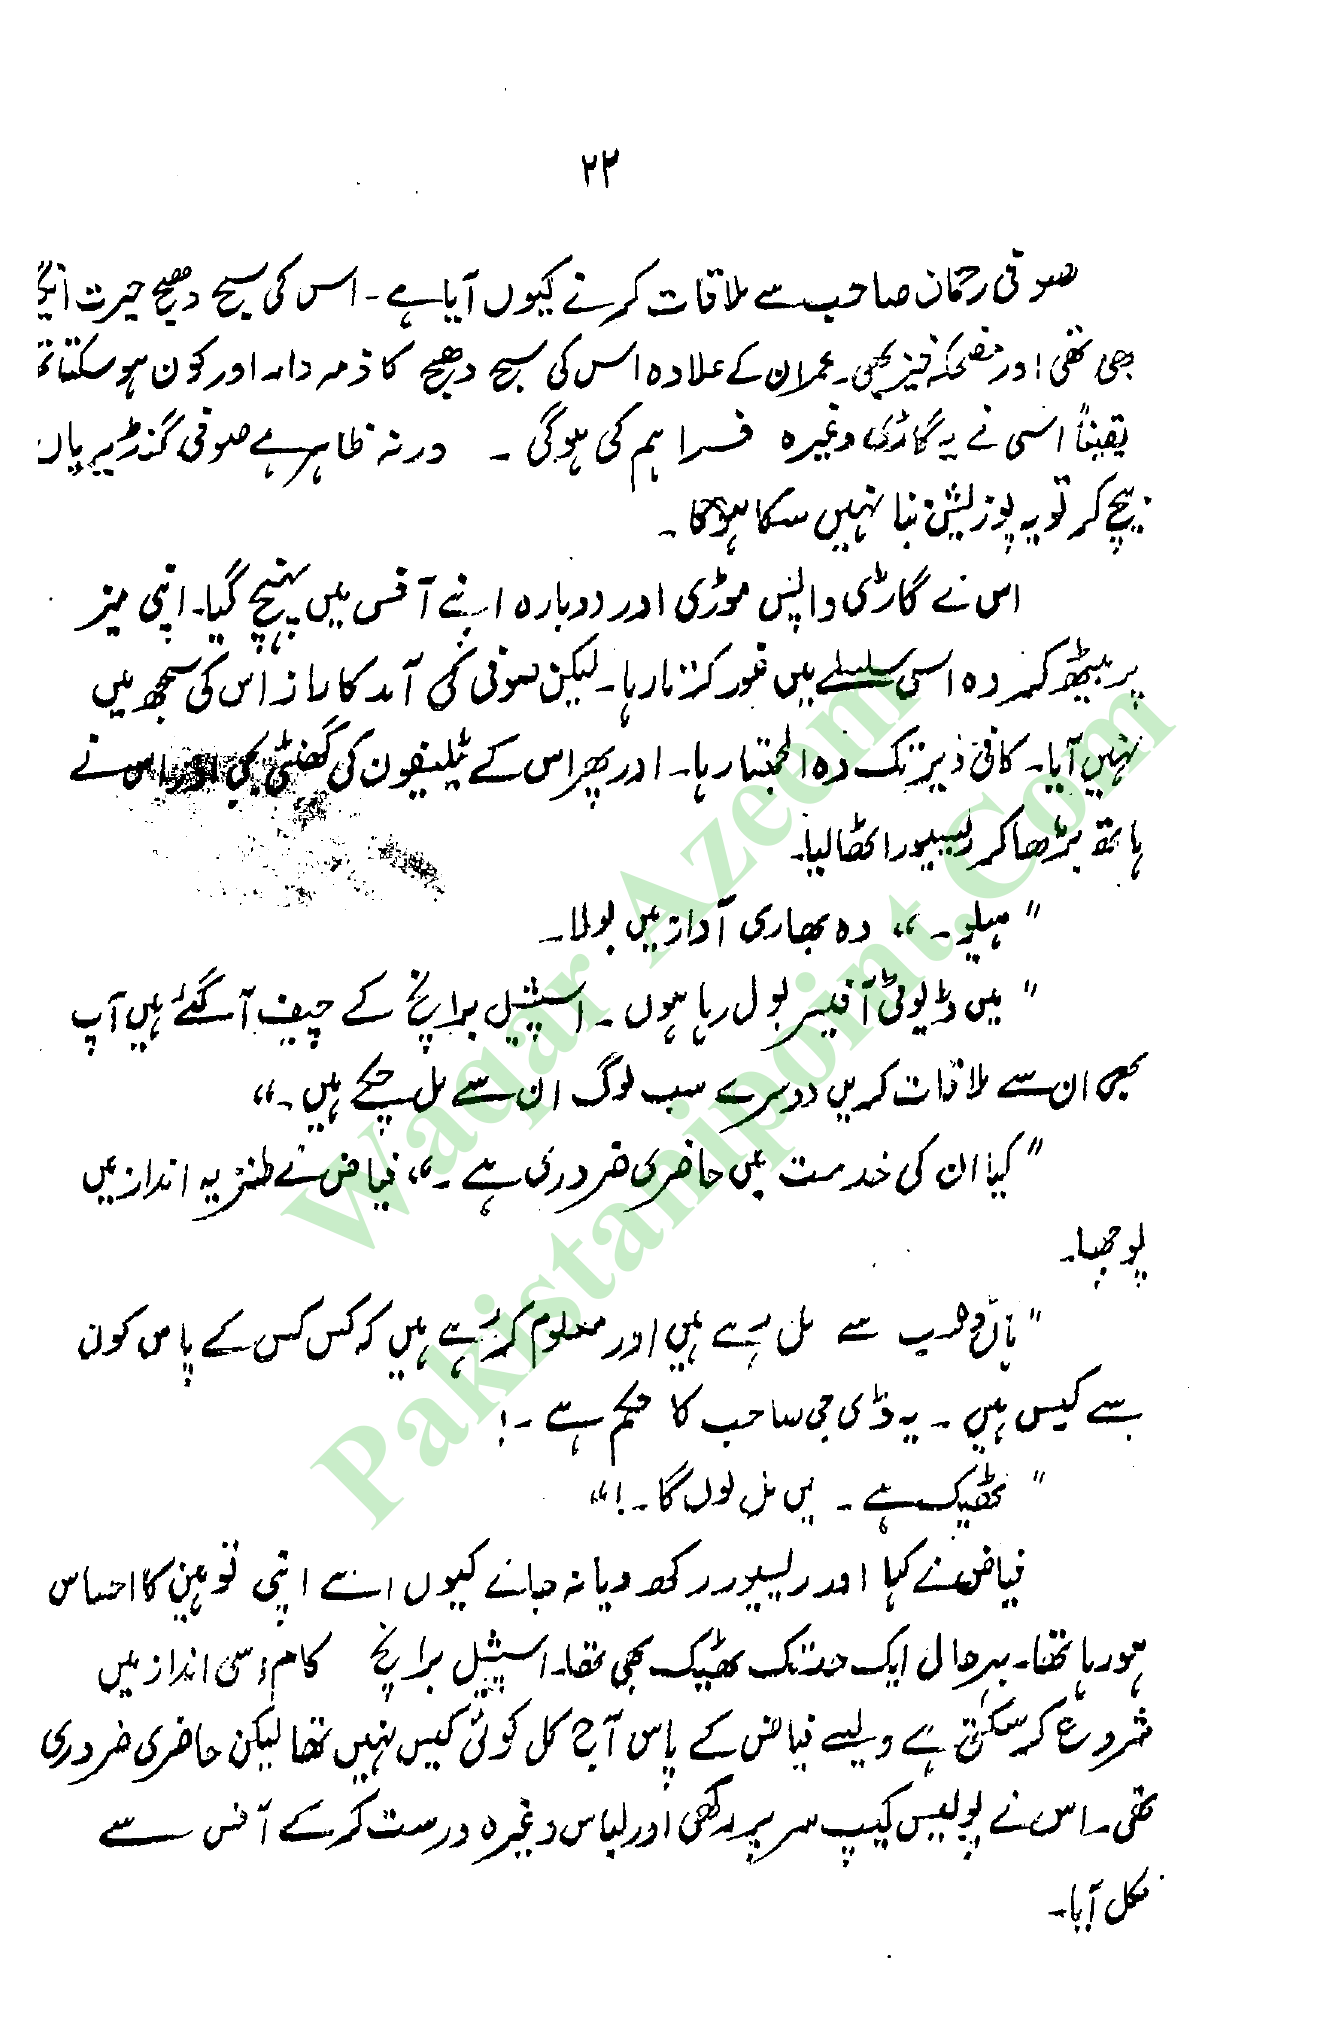 ۲۲
صوفی رحمان صاحب سے ملاقات کرنے کیوں آیا ہے۔ اس کی سج دھج حیرت انگی
بھی تھی اور مضحکہ خیز بھی۔ عمران کے علاوہ اس کی سج دھج کا ذمہ دار اور کون ہو سکتا تھ
یقیناً اسی نے یہ گاڑی وغیرہ فراہم کی ہوگی ۔ ورنہ ظاہر ہے صوفی گنڈیریاں
بیچ کر تو یہ پوزیشن بنا نہیں سکا ہوگا ۔
اس نے گاڑی واپس موڑی اور دوبارہ اپنے آفس میں پہنچ گیا۔ اپنی میز
پر بیٹھ کر وہ اسی سلسلے میں غور کرتا رہا۔ لیکن صوفی کی آمد کا راز اس کی سمجھ میں
نہیں آیا۔ کافی دیر تک وہ الجھتا رہا۔ اور پھر اس کے ٹیلیفون کی گھنٹی بجی اور اس نے
ہاتھ بڑھا کر ریسیور اٹھا لیا۔
" ہیلو ۔ " وہ بھاری آواز میں بولا۔
" میں ڈیوٹی آفیسر بول رہا ہوں ۔ اسپیشل برانچ کے چیف آ گئے ہیں آپ
بھی ان سے ملاقات کریں دوسرے سب لوگ ان سے مل چکے ہیں ۔ "
" کیا ان کی خدمت میں حاضری ضروری ہے ۔ " فیاض نے طنزیہ انداز میں
پوچھا۔
" ہاں وہ سب سے مل رہے ہیں اور معلوم کر رہے ہیں کہ کس کس کے پاس کون
سے کیس ہیں ۔ یہ ڈی جی صاحب کا حکم ہے ۔ !
" ٹھیک ہے ۔ میں مل لوں گا ۔ ! "
فیاض نے کہا اور ریسیور رکھ دیا نہ جانے کیوں اسے اپنی توہین کا احساس
ہو رہا تھا۔ بہرحال ایک حد تک ٹھیک بھی تھا۔ اسپیشل برانچ کام اسی انداز میں
شروع کر سکتی ہے ویسے فیاض کے پاس آج کل کوئی کیس نہیں تھا لیکن حاضری ضروری
تھی۔ اس نے پولیس کیپ سر پر رکھی اور لباس وغیرہ درست کر کے آفس سے
نکل آیا۔
Waqar Azeem
Pakistanipoint.Com